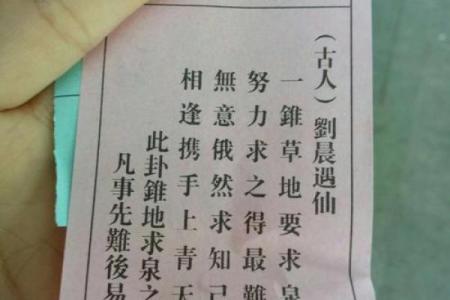 （古人）劉晨遇仙
一錐草地要求泉
努力求之得最難
無意俄然求知己
相逢携手上青天
此卦錐地求泉之
凡事先難後易